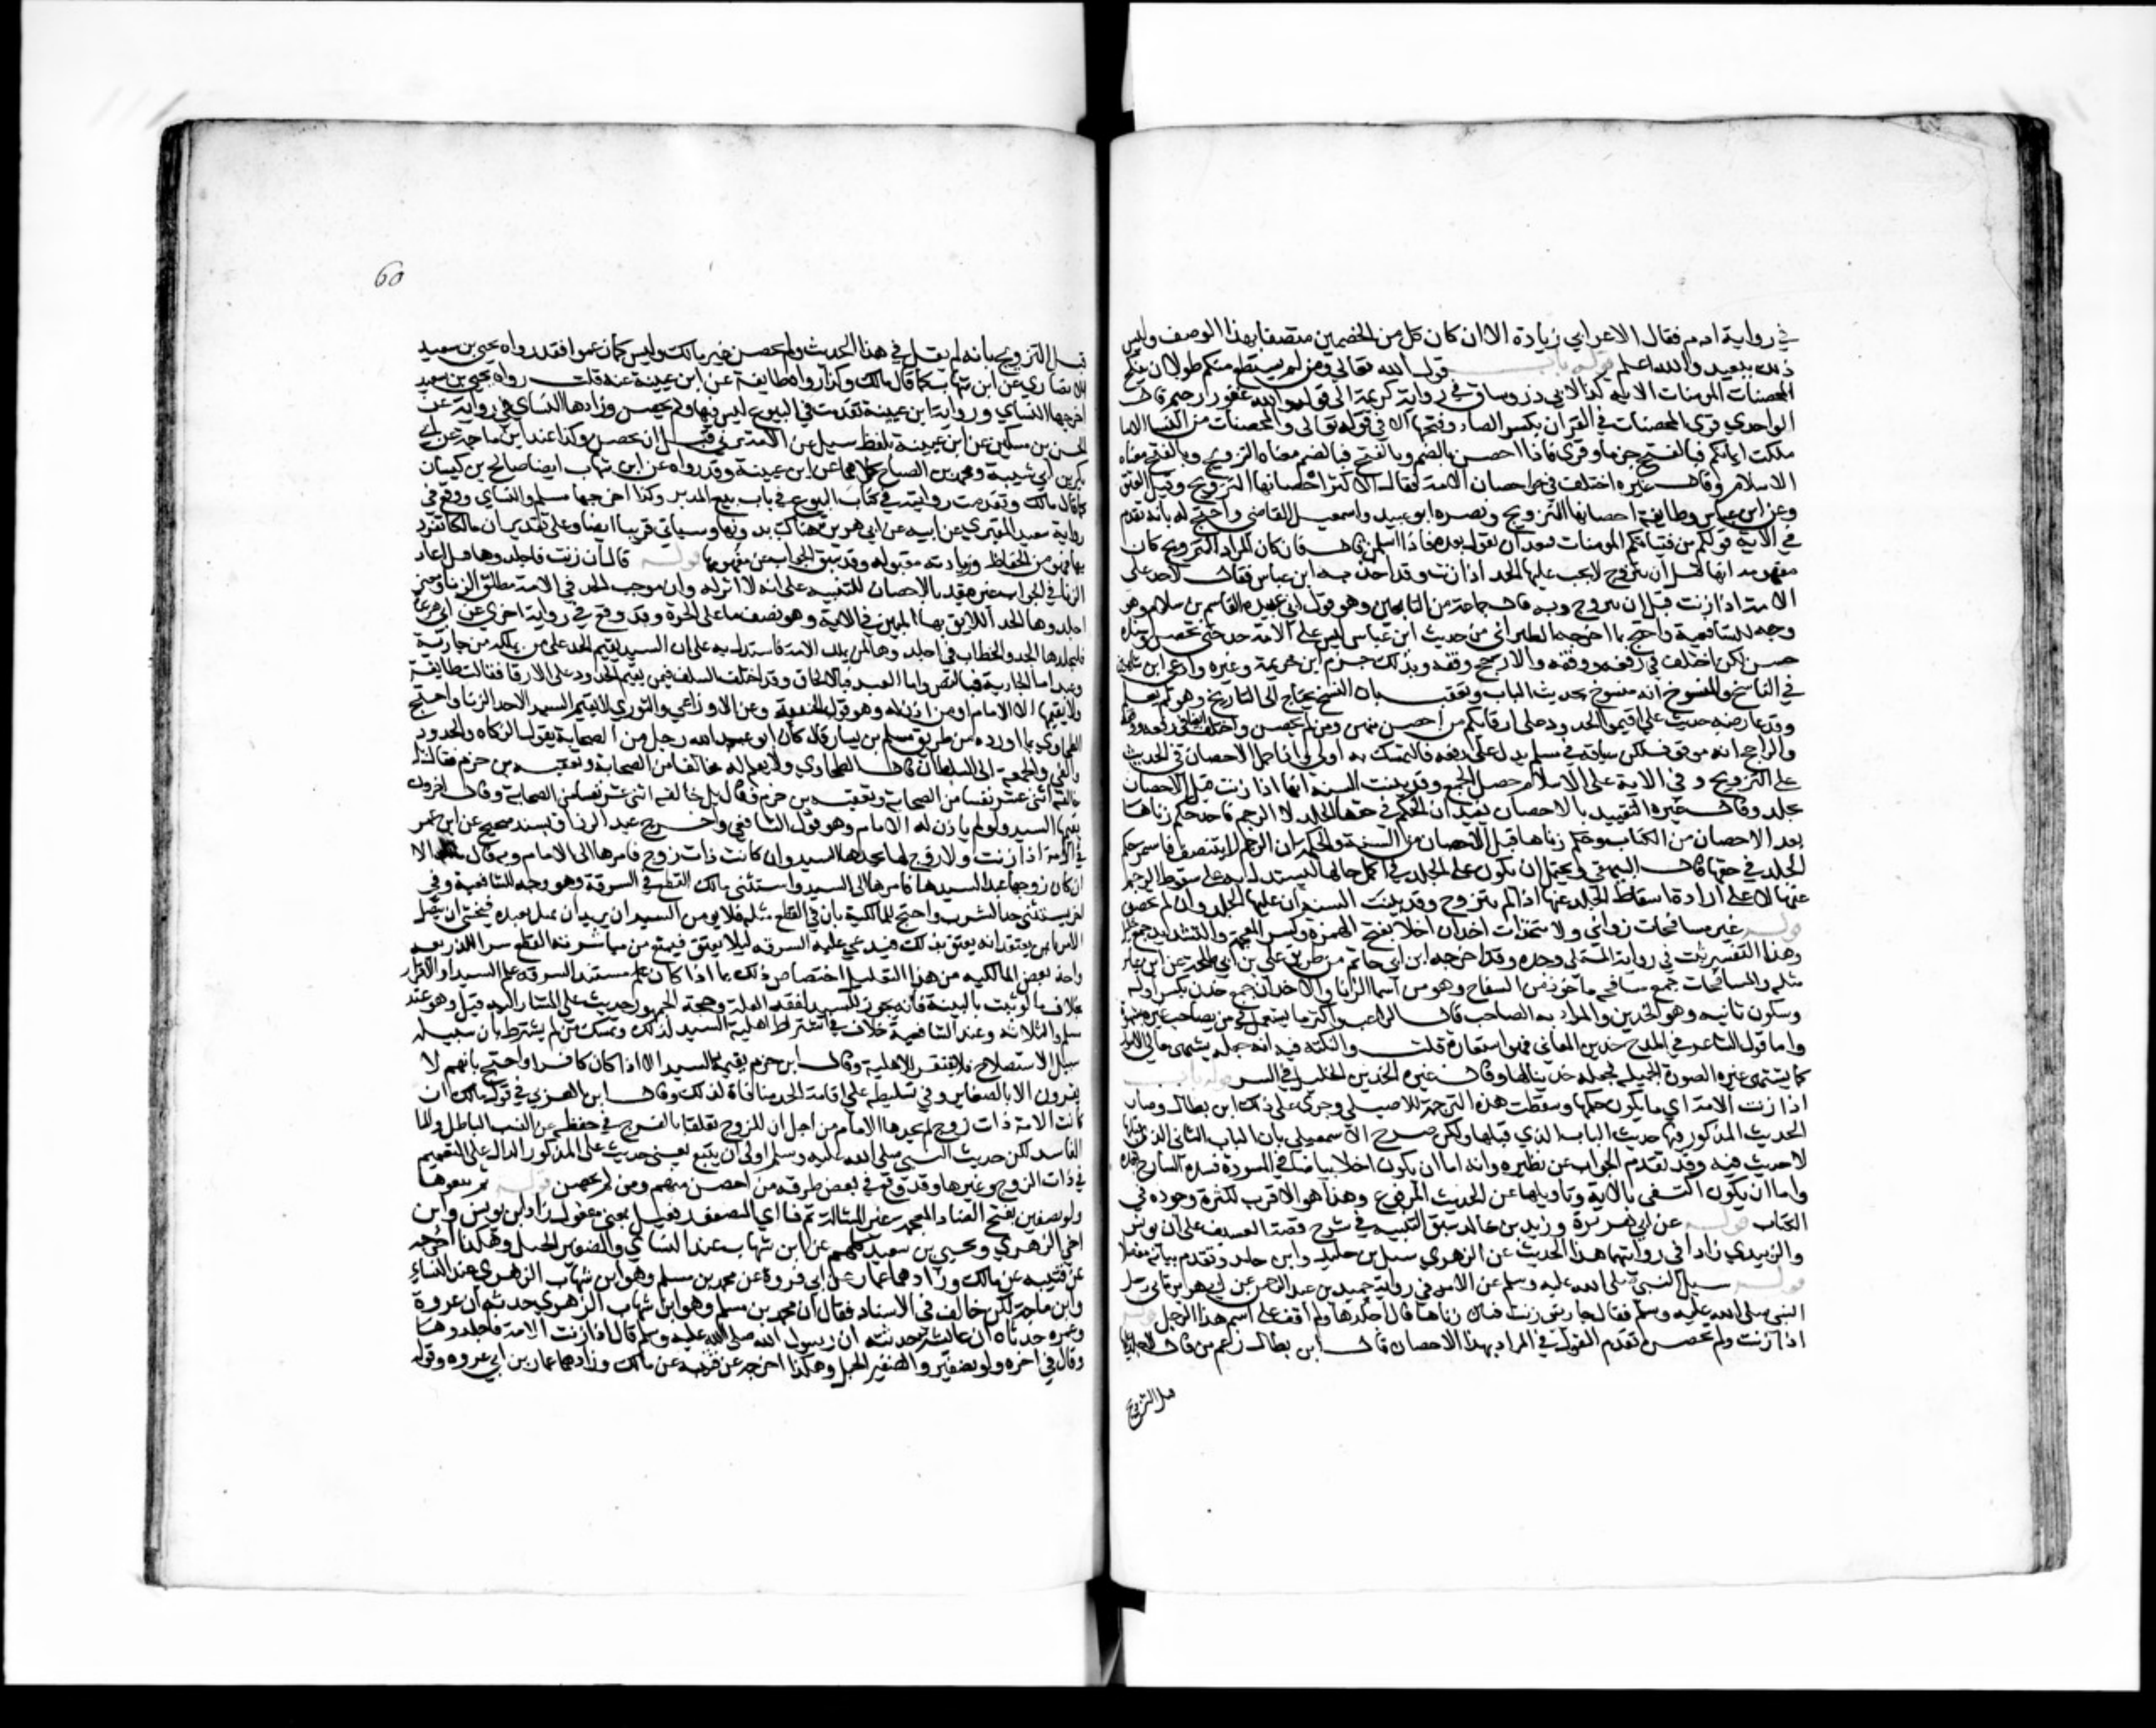 في رواية ادم فقال الاعرابي زيادة الا ان كان كل من الخصمين متصفا بهذا الوصف وليس
ذلك ببعيد والله اعلم قوله باب قول الله تعالى ومن لم يستطع منكم طولا ان ينكح
المحصنات المومنات الاية كذا لابي ذر وساق في رواية كريمة الى قوله والله غفور رحيم قال
الواحدي قرئ المحصنات في القران بكسر الصاد وفتحها الا في قوله تعالى والمحصنات من النسا الا ما
ملكت ايمانكم فبالفتح جزما وقرئ فاذا احصن بالضم وبالفتح فبالضم معناه التزويج وبالفتح معناه
الاسلام وقال غيره اختلف في احصان الامة فقال الاكثر احصانها التزويج وقيل العتق
وعن ابن عباس وطايفة احصانها التزويج ونصره ابو عبيد واسمعيل القاضي واحتج له بانه تقدم
في الاية قوله من فتياتكم المومنات فيبعد ان يقول بعده فاذا اسلمن قال فان كان المراد التزويج كان
مفهومه انها قبل ان تتزوج لا يجب عليها الحد اذا زنت وقد اخذ به ابن عباس فقال لا حد على
الامة اذا زنت قبل ان تتزوج وبه قال جماعة من التابعين وهو قول ابي عبيد القاسم بن سلام وهو
وجه للشافعية واحتج بما اخرجه الطبراني من حديث ابن عباس ليس على الامة حد حتى تحصن
حسن لكن اختلف في رفعه ووقفه والارجح وقفه وبذلك جزم ابن خزيمة وغيره وادعى ابن
في الناسخ والمنسوخ انه منسوخ بحديث الباب وتعقب بان النسخ يحتاج الى التاريخ وهو لم يعلم
وقد عارضه حديث علي اقيموا الحدود على ارقايكم من احصن منهم ومن لم يحصن واختلف
والراجح انه موقوف لكن سياقه في مسلم يدل على رفعه فالتمسك به اولى واذا حمل الاحصان في الحديث
على التزويج وفي الاية على الاسلام حصل الجمع وقد بينت السنة انها اذا زنت قبل الاحصان
تجلد وقال غيره التقييد بالاحصان يفيد ان الحكم في حقها الجلد لا الرجم فاخذ حكم زناها
بعد الاحصان من الكتاب وحكم زناها قبل الاحصان من السنة والحكمة ان الرجم لا يتنصف فاستمر حكم
الجلد في حقها قال البيهقي ويحتمل ان يكون على الجلد في اكمل حالها ليستدل به على سقوط الرجم
عنها لا على ارادة اسقاط الجلد عنها اذا لم تتزوج وقد بينت السنة ان عليها الجلد وان لم تحصن
قوله غير مسافحات زواني ولا متخذات اخدان اخلا بفتح الهمزة وكسر المعجمة والتشديد جمع
وهذا التفسير ثبت في رواية المستملي وحده وقد اخرجه ابن ابي حاتم من طريق علي بن ابي طلحة عن ابن عباس
مثله والمسافحات جمع مسافحة ماخوذ من السفاح وهو من اسما الزنا والاخدان جمع خدن بكسر اوله
وسكون ثانيه وهو الخدين والمراد به الصاحب قال الراغب واكثر ما يستعمل في من يصاحب غيره
واما قول الشاعر في المدح خدين المعالي فهو استعارة قلت والنكتة فيه انه جعله يشتهي معالي الامور
كما يشتهي غيره الصورة الجميلة فجعله خدينا لها وقال غيره الخدين الخليل في السر قوله باب
اذا زنت الامة اي ما يكون حكمها وسقطت هذه الترجمة للاصيلي وجرى على ذلك ابن بطال وصار
الحديث المذكور فيها حديث الباب الذي قبلها ولكن صرح الاسمعيلي بان الباب الثاني الذي قبلها
لا حديث فيه وقد تقدم الجواب عن نظيره وانه اما ان يكون اخلا بياضا في المسودة فسده النساخ بعده
واما ان يكون اكتفى بالاية وتاويلها عن الحديث المرفوع وهذا هو الاقرب لكثرة وجوده في
الكتاب قوله عن ابي هريرة وزيد بن خالد سبق التنبيه في شرح قصة العسيف على ان يونس
والزبيدي زادا في روايتهما هذا الحديث عن الزهري شبل بن خليد او ابن حامد وتقدم بيانه مفصلا
قوله سيل النبي صلى الله عليه وسلم عن الامة في رواية حميد بن عبد الرحمن عن ابي هريرة اتى رجل
النبي صلى الله عليه وسلم فقال جاريتي زنت فتبين زناها قال اجلدها ولم اقف على اسم هذا الرجل قوله
اذا زنت ولم تحصن تقدم القول في المراد بهذا الاحصان قال ابن بطال زعم من قال لا جلد عليها
قبل التزويج
60
قبل التزويج بانه لم يقل في هذا الحديث ولم تحصن غير مالك وليس كما زعموا فقد رواه يحيى بن سعيد
الانصاري عن ابن شهاب كما قال مالك وكذا رواه طايفة عن ابن عيينة عنه قلت رواية يحيى بن سعيد
اخرجها النساي ورواية ابن عيينة تقدمت في البيوع ليس فيها ولم تحصن وزادها النساي في روايته عن
الحسن بن مسكين عن ابن عيينة بلفظ سيل عن الامة تزني قبل ان تحصن وكذا عند ابن ماجه عن ابي
بكر بن ابي شيبة ومحمد بن الصباح كلاهما عن ابن عيينة وقد رواه عن ابن شهاب ايضا صالح بن كيسان
كما قال مالك وتقدمت روايته في كتاب البيوع في باب بيع المدبر وكذا اخرجها مسلم والنساي ووقع في
رواية سعيد المقبري عن ابيه عن ابي هريرة هناك بدونها وسياتي قريبا ايضا وعلى تقدير ان مالكا تفرد
بها فهو من الحفاظ وزيادته مقبولة وقد سبق الجواب عن مفهومها قوله قال ان زنت فاجلدوها قيل اعاد
الزنا في الجواب غير مقيد بالاحصان للتنبيه على انه لا اثر له وان موجب الحد في الامة مطلق الزنا ومعنى
اجلدوها الحد اللايق بها المبين في الاية وهو نصف ما على الحرة وقد وقع في رواية اخرى عن ابي هريرة
فليجلدها الحد والخطاب في اجلدوها لمن يملك الامة فاستدل به على ان السيد يقيم الحد على من يملكه من جارية
وعبد اما الجارية فبالنص واما العبد فبالالحاق وقد اختلف السلف فيمن يقيم الحدود على الارقا فقالت طايفة
ولا يقيمها الا الامام او من اذن له وهو قول الحنفية وعن الاوزاعي والثوري لا يقيم السيد الا حد الزنا واحتج
الطحاوي بما اورده من طريق مسلم بن يسار قال كان ابو عبد الله رجل من الصحابة يقول الزكاة والحدود
والفي والجمعة الى السلطان قال الطحاوي ولا نعلم له مخالفا من الصحابة وتعقبه بن حزم فقال بل
خالفه اثني عشر نفسا من الصحابة وتعقبه بن حزم فقال بل خالفه اثنى عشر نفسا من الصحابة وقال اخرون
يقيمها السيد ولو لم ياذن له الامام وهو قول الشافعي واخرج عبد الرزاق بسند صحيح عن ابن عمر
في الامة اذا زنت ولا زوج لها يحدها السيد وان كانت ذات زوج فامرها الى الامام وبه قال مالك الا
ان كان زوجها عبدا لسيدها فامرها الى السيد واستثنى مالك القطع في السرقة وهو وجه للشافعية وفي
اخر يستثنى حد الشرب واحتج للمالكية بان في القطع مثلة فلا يومن السيد ان يريد ان يمثل بعبده فيخشى ان يتصل
الامر بمن يعتقد انه يعتق بذلك فيدعي عليه السرقة ليلا يعتق فيمنع من مباشرته القطع سدا للذريعة
واخذ بعض المالكية من هذا التعليل اختصاص ذلك بما اذا كان مستند السرقة علم السيد او الاقرار
بخلاف ما لو ثبت بالبينة فانه يجوز للسيد لفقد العلة وحجة الجمهور حديث علي المشار اليه قبل وهو عند
مسلم والثلاثة وعند الشافعية خلاف في اشتراط اهلية السيد لذلك وتمسك من لم يشترط بان سبيله
سبيل الاستصلاح فلا يفتقر للاهلية وقال ابن حزم يقيمه السيد الا اذا كان كافرا واحتج بانهم لا
يقرون الا بالصغار وفي تسليطه على اقامة الحد منافاة لذلك وقال ابن العربي في قول مالك ان
كانت الامة ذات زوج لم يحدها الامام من اجل ان للزوج تعلقا بالفرج في حفظه عن النسب الباطل والما
الفاسد لكن حديث النبي صلى الله عليه وسلم اولى ان يتبع يعني حديث علي المذكور الدال على التعميم
في ذات الزوج وغيرها وقد وقع في بعض طرقه من احصن منهم ومن لم يحصن قوله ثم بيعوها
ولو بضفير بفتح الضاد المعجمة غير المشالة ثم فا اي المضفور فعيل بمعنى مفعول زاد بن يونس وابن
اخي الزهري ويحيى بن سعيد كلهم عن ابن شهاب عند النساي والضفير الحبل وهكذا اخرجه
عن قتيبة عن مالك وزادها عمار عن ابي فروة عن محمد بن مسلم وهو ابن شهاب الزهري عند النساي
وابن ماجة لكن خالف في الاسناد فقال ان محمد بن مسلم وهو ابن شهاب الزهري حدثه ان عروة
وعمرة حدثاه ان عايشة حدثته ان رسول الله صلى الله عليه وسلم قال اذا زنت الامة فاجلدوها
وقال في اخره ولو بضفير والضفير الحبل وهكذا اخرجه عن قتيبة عن مالك وزادها عمار بن ابي عروه وقوله